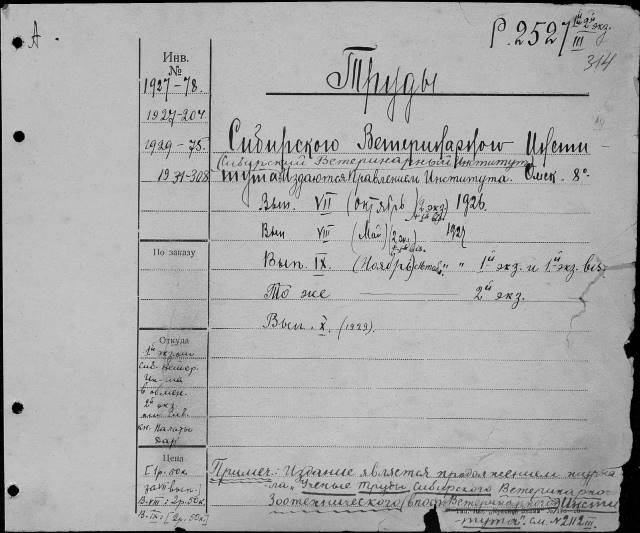 А
Р. 2527 1й 2й экз.
III
314
Инв.
№
1927-78.
1927-204
1929-75.
1931-308
Труды
Сибирского Ветеринарного Инсти
(Сибирский Ветеринарный Институт)
тута. Издаются Правлением Института. Омск. 8°.
Вып. VII (октябрь) 2 экз. 1926.
Вып VIII (Май) 2 экз. 1927
Вып. IX. (Ноябрь) " " 1й экз. и 1й экз.
То же 2й экз.
Вып. X. (1929).
По заказу
Откуда
1й экз.
Сиб. Ветер.
Ин-та
в обмен.
2й экз.
кн. Палаты
Дар
Цена
[1р. 50к
за VII вып.]
В. VIII: 2р. 50к.
В. IX: [2р. 50к]
Примеч: Издание является продолжением журна
ла "Ученые Труды Сибирского Ветеринарно-
Зоотехнического Ветеринарного Инсти
тута". см. №2112 III.